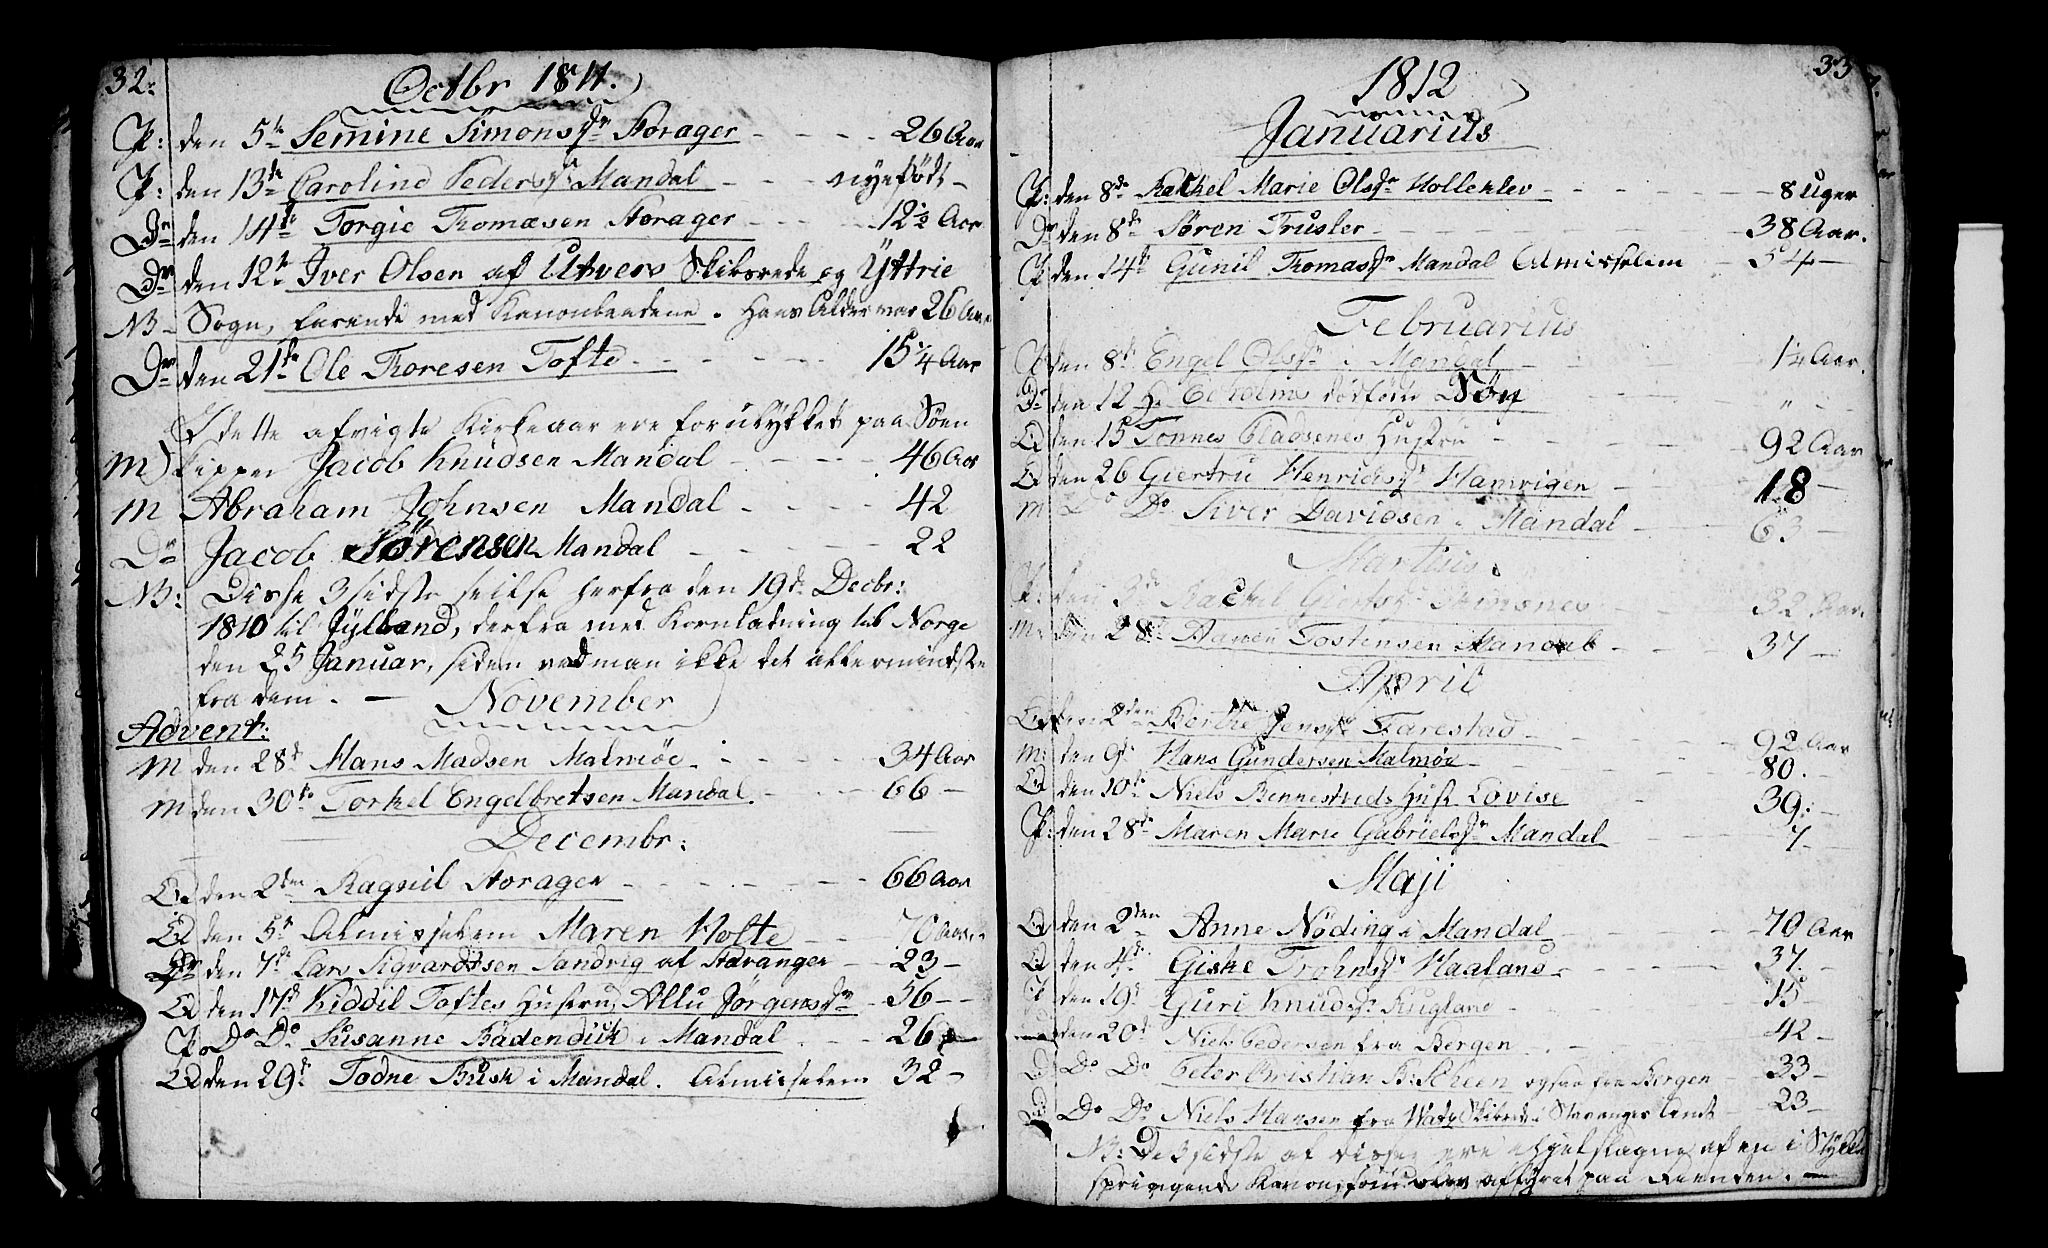 32.
Octbr 1811.
P: den 5te Semine Simonsdr Storager - - - 26 Aar
P: den 13de Caroline Pedersdr Mandal - - - nyefödt -
Dr den 14de Torgie Thomæsen Storager - - - 12½ Aar
Dr den 12te Iver Olsen af Utvers Skibsrede og Yttrie
NB - Sogn, farende med Kanonbaadene. Hans Alder var 26 Aar
Dr den 21de Ole Thoresen Tofte - - - 15¼ Aar
I dette afvigte Kirkeaar ere forulykket paa Söen
M) Skipper Jacob Knudsen Mandal - - - 46 Aar
M Abraham Johnsen Mandal - - - 42
Do Jacob Sörensen Mandal - - - 22
NB: Disse 3 sidste seilte herfra den 19de Decbr:
1810 til Jylland, derfra med Kornladning til Norge
den 25 Januar, siden ved man ikke det allermindste
fra dem. -
November
Advent:
M den 28de Hans Madsen Malmöe - - - 34 Aar
M den 30te Torkel Engelbretsen Mandal - - - 66 -
Decembr:
Q den 2den Ragnil Storager - - - 66 Aar
Q den 5te Almisselem Maren Holte - - - 70 Aar
den 7de Lars Sigvardtsen Sandvig af Stavanger - 23 -
Q den 17de Kiddil Toftes Hustru, Allu Jörgensdr - 56 -
P. Do Do Susanne Bådendick i Mandal - - - 26
Q den 29de Todne Busk i Mandal. Almisselem 32 -
33
1812
Januarius
P: den 8de Rachel Marie Olsdr Holleklev - - - 8 Uger
Dr den 8de Sören Trusler - - - 38 Aar.
P: den 14de Gunil Thomasdr Mandal Almisselem - 54 -
Februarius
P den 8de Engel Olsdr i Mandal - - - ¼ Aar.
Dr den 12 dödföd Sön - - - " -
Q den 15 Tönnes Cladsenes Hustru - - - 92 Aar
Q den 26 Giertru Henrichsdr - 18 -
M Do Do Siver Davidsen i Mandal - - - 63 -
Martius
P: den 3de Rachel Giertsdr - - - 32 Aar.
M: den 28de Aanen Tostensen Mandal - - - 37 -
April
Q den 2den Börthe Jensdr Farestad - - - 92 Aar
M: den 9de Hans Gundersen Malmöe - - - 80. -
Q den 10de Niels Hustr Lovise - 39: -
P: den 28de Maren Marie Gabrielsdr Mandal - - - 7 -
Maji
Q den 2den Anne Nöding i Mandal - - - 70 Aar
Q den 4de Giske Trohnsdr Haaland - - - 37. -
P den 19de Guri Knudsdr - - - 15 -
den 20de Niels Pedersen fra Bergen - - - 42 -
D Do Do Peter Christian B: Scheen ogsaa fra Bergen - 33 -
D Do Do Niels Hansen fra Skibrede i Stavanger Amt - 23 -
NB: De sidste af disse ere ihjelslagne af en i Stykker
springende Kanon, som blev affyret paa Reenden. -